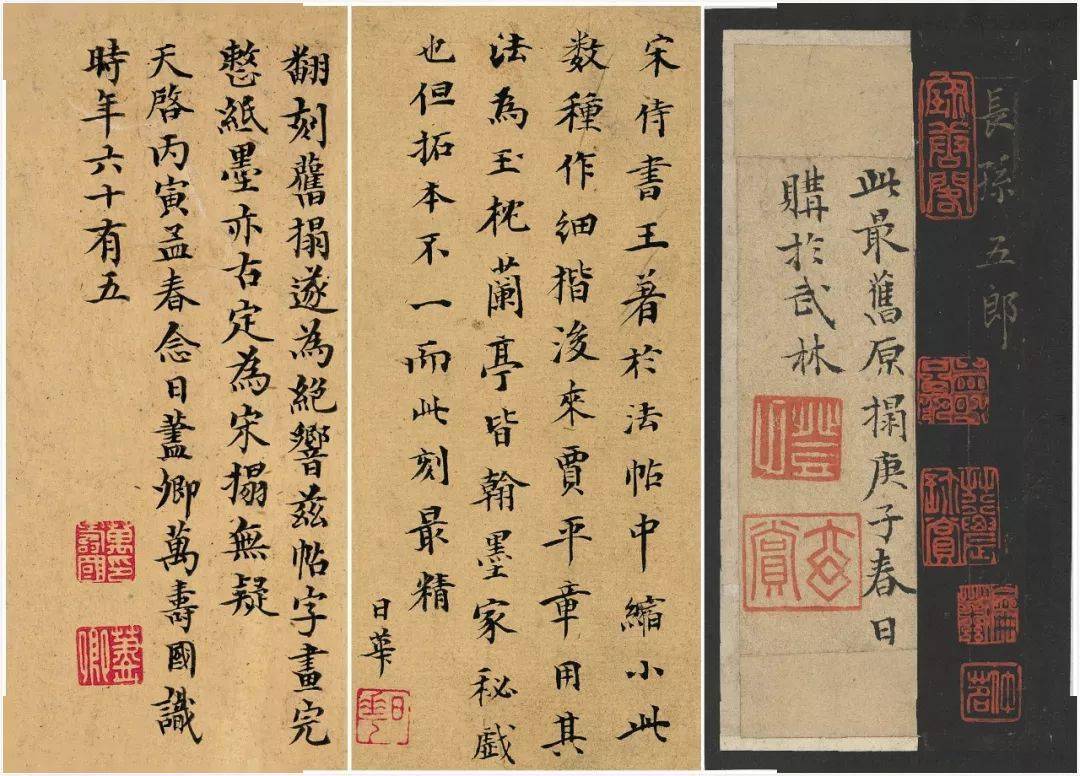 長孫五郎
此最舊原搨庚子春日
購於武林
宋待書王著於法帖中縮小此
数種作細楷後來賈平章用其
法為玉枕蘭亭皆翰墨家秘戲
也但拓本不一而此刻最精
日華
翻刻舊搨遂為絕響兹帖字畫完
整紙墨亦古定為宋搨無疑
天啓丙寅孟春念日藎卿萬壽國識
時年六十有五